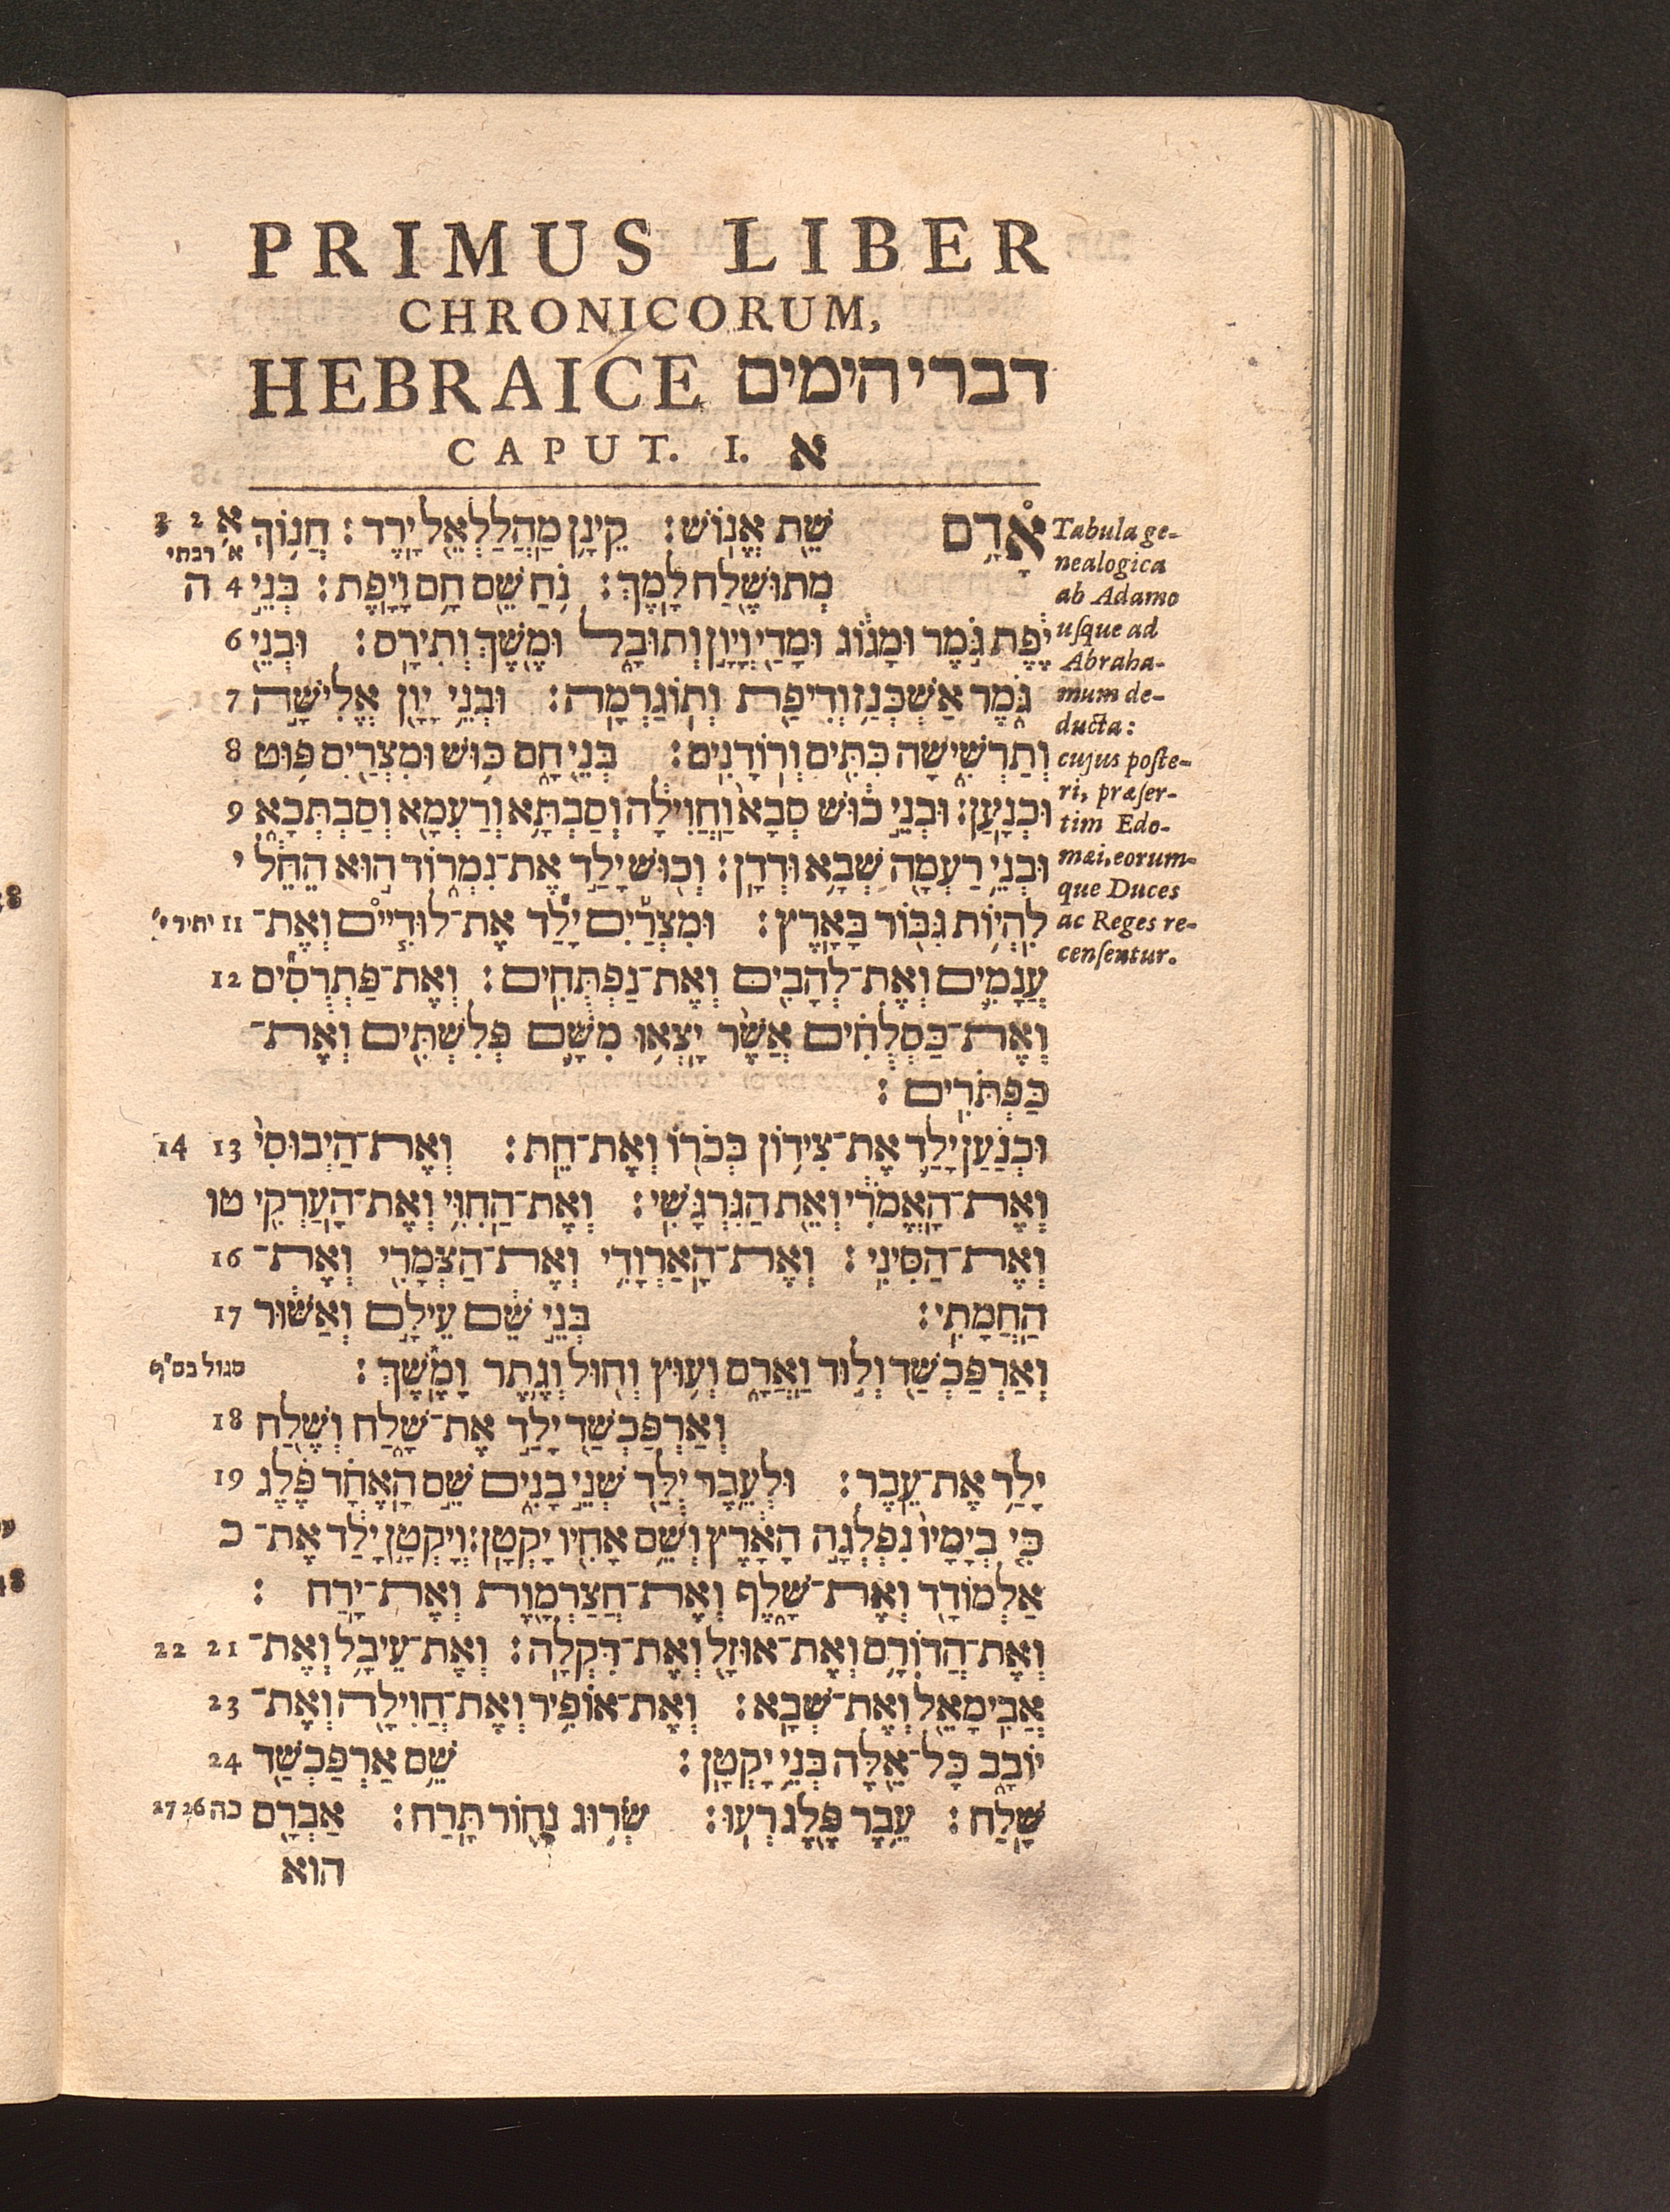 PRIMUS LIBER
CHRONICORUM,
HEBRAICE דברי הימים
CAPUT. I. א
אָדָ֥ם שֵׁ֖ת אֱנֽוֹשׁ׃ קֵינָ֥ן מַהֲלַלְאֵ֖ל יָֽרֶד׃ חֲנ֥וֹךְ א 2 3
א׳ רבתי
מְתוּשֶׁ֖לַח לָֽמֶךְ׃ נֹ֥חַ שֵׁ֖ם חָ֥ם וָיָֽפֶת׃ בְּנֵ֣י 4 ה
יֶ֔פֶת גֹּ֣מֶר וּמָג֔וֹג וּמָדַ֖י וְיָוָ֣ן וְתוּבָ֑ל וּמֶ֖שֶׁךְ וְתִירָֽס׃ וּבְנֵ֖י 6
גֹּ֑מֶר אַשְׁכְּנַ֥ז וְדִיפַ֖ת וְתוֹגַרְמָֽה׃ וּבְנֵ֥י יָוָ֖ן אֱלִישָׁ֣ה 7
וְתַרְשִׁ֑ישָׁה כִּתִּ֖ים וְרוֹדָנִֽים׃ בְּנֵ֖י חָ֑ם כּ֥וּשׁ וּמִצְרַ֖יִם פּ֥וּט 8
וּכְנָֽעַן׃ וּבְנֵ֣י כ֔וּשׁ סְבָא֙ וַחֲוִילָ֔ה וְסַבְתָּ֥א וְרַעְמָ֖א וְסַבְתְּכָ֑א 9
וּבְנֵ֥י רַעְמָ֖ה שְׁבָ֥א וּדְדָֽן׃ וְכ֖וּשׁ יָלַ֣ד אֶת־נִמְר֑וֹד ה֣וּא הֵחֵ֔ל י
לִהְי֥וֹת גִּבּ֖וֹר בָּאָֽרֶץ׃ וּמִצְרַ֡יִם יָלַ֞ד אֶת־לוּדִיִּ֧ים וְאֶת־ 11 יתיר י׳
עֲנָמִ֛ים וְאֶת־לְהָבִ֖ים וְאֶת־נַפְתֻּחִֽים׃ וְאֶת־פַּתְרֻסִ֞ים 12
וְאֶת־כַּסְלֻחִ֗ים אֲשֶׁ֨ר יָצְא֥וּ מִשָּׁ֛ם פְּלִשְׁתִּ֖ים וְאֶת־
כַּפְתֹּרִֽים׃
וּכְנַ֗עַן יָלַ֛ד אֶת־צִיד֥וֹן בְּכֹר֖וֹ וְאֶת־חֵֽת׃ וְאֶת־הַיְבוּסִי֙ 13 14
וְאֶת־הָ֣אֱמֹרִ֔י וְאֵ֖ת הַגִּרְגָּשִֽׁי׃ וְאֶת־הַחִוִּ֥י וְאֶת־הַעַרְקִ֖י טו
וְאֶת־הַסִּינִֽי׃ וְאֶת־הָאַרְוָדִ֥י וְאֶת־הַצְּמָרִ֖י וְאֶת־ 16
הַחֲמָתִֽי׃ בְּנֵ֣י שֵׁ֔ם עֵילָ֣ם וְאַשּׁ֔וּר 17
וְאַרְפַּכְשַׁ֖ד וְל֣וּד וַאֲרָ֑ם וְע֥וּץ וְח֖וּל וְגֶ֥תֶר וָמֶֽשֶׁךְ׃ סגול בס״ף
וְאַרְפַּכְשַׁ֖ד יָלַ֣ד אֶת־שָׁ֑לַח וְשֶׁ֖לַח 18
יָלַ֥ד אֶת־עֵֽבֶר׃ וּלְעֵ֥בֶר יֻלַּ֖ד שְׁנֵ֣י בָנִ֑ים שֵׁ֣ם הָאֶחָ֞ד פֶּ֗לֶג 19
כִּ֤י בְיָמָיו֙ נִפְלְגָ֣ה הָאָ֔רֶץ וְשֵׁ֥ם אָחִ֖יו יָקְטָֽן׃ וְיָקְטָ֣ן יָלַ֔ד אֶת־ כ
אַלְמוֹדָ֖ד וְאֶת־שָׁ֑לֶף וְאֶת־חֲצַרְמָ֖וֶת וְאֶת־יָֽרַח׃
וְאֶת־הֲדוֹרָ֥ם וְאֶת־אוּזָ֖ל וְאֶת־דִּקְלָֽה׃ וְאֶת־עֵיבָ֥ל וְאֶת־ 21 22
אֲבִימָאֵ֖ל וְאֶת־שְׁבָֽא׃ וְאֶת־אוֹפִ֥יר וְאֶת־חֲוִילָ֖ה וְאֶת־ 23
יוֹבָ֑ב כָּל־אֵ֖לֶּה בְּנֵ֥י יָקְטָֽן׃ שֵׁ֥ם אַרְפַּכְשַׁ֖ד 24
שָֽׁלַח׃ עֵ֥בֶר פֶּ֖לֶג רְעֽוּ׃ שְׂר֥וּג נָח֖וֹר תָּֽרַח׃ אַבְרָ֖ם כה 26 27
הוא
Tabula ge-
nealogica
ab Adamo
uſque ad
Abraha-
mum de-
ducta:
cujus poſte-
ri, præſer-
tim Edo-
mæi, eorum-
que Duces
ac Reges re-
cenſentur.